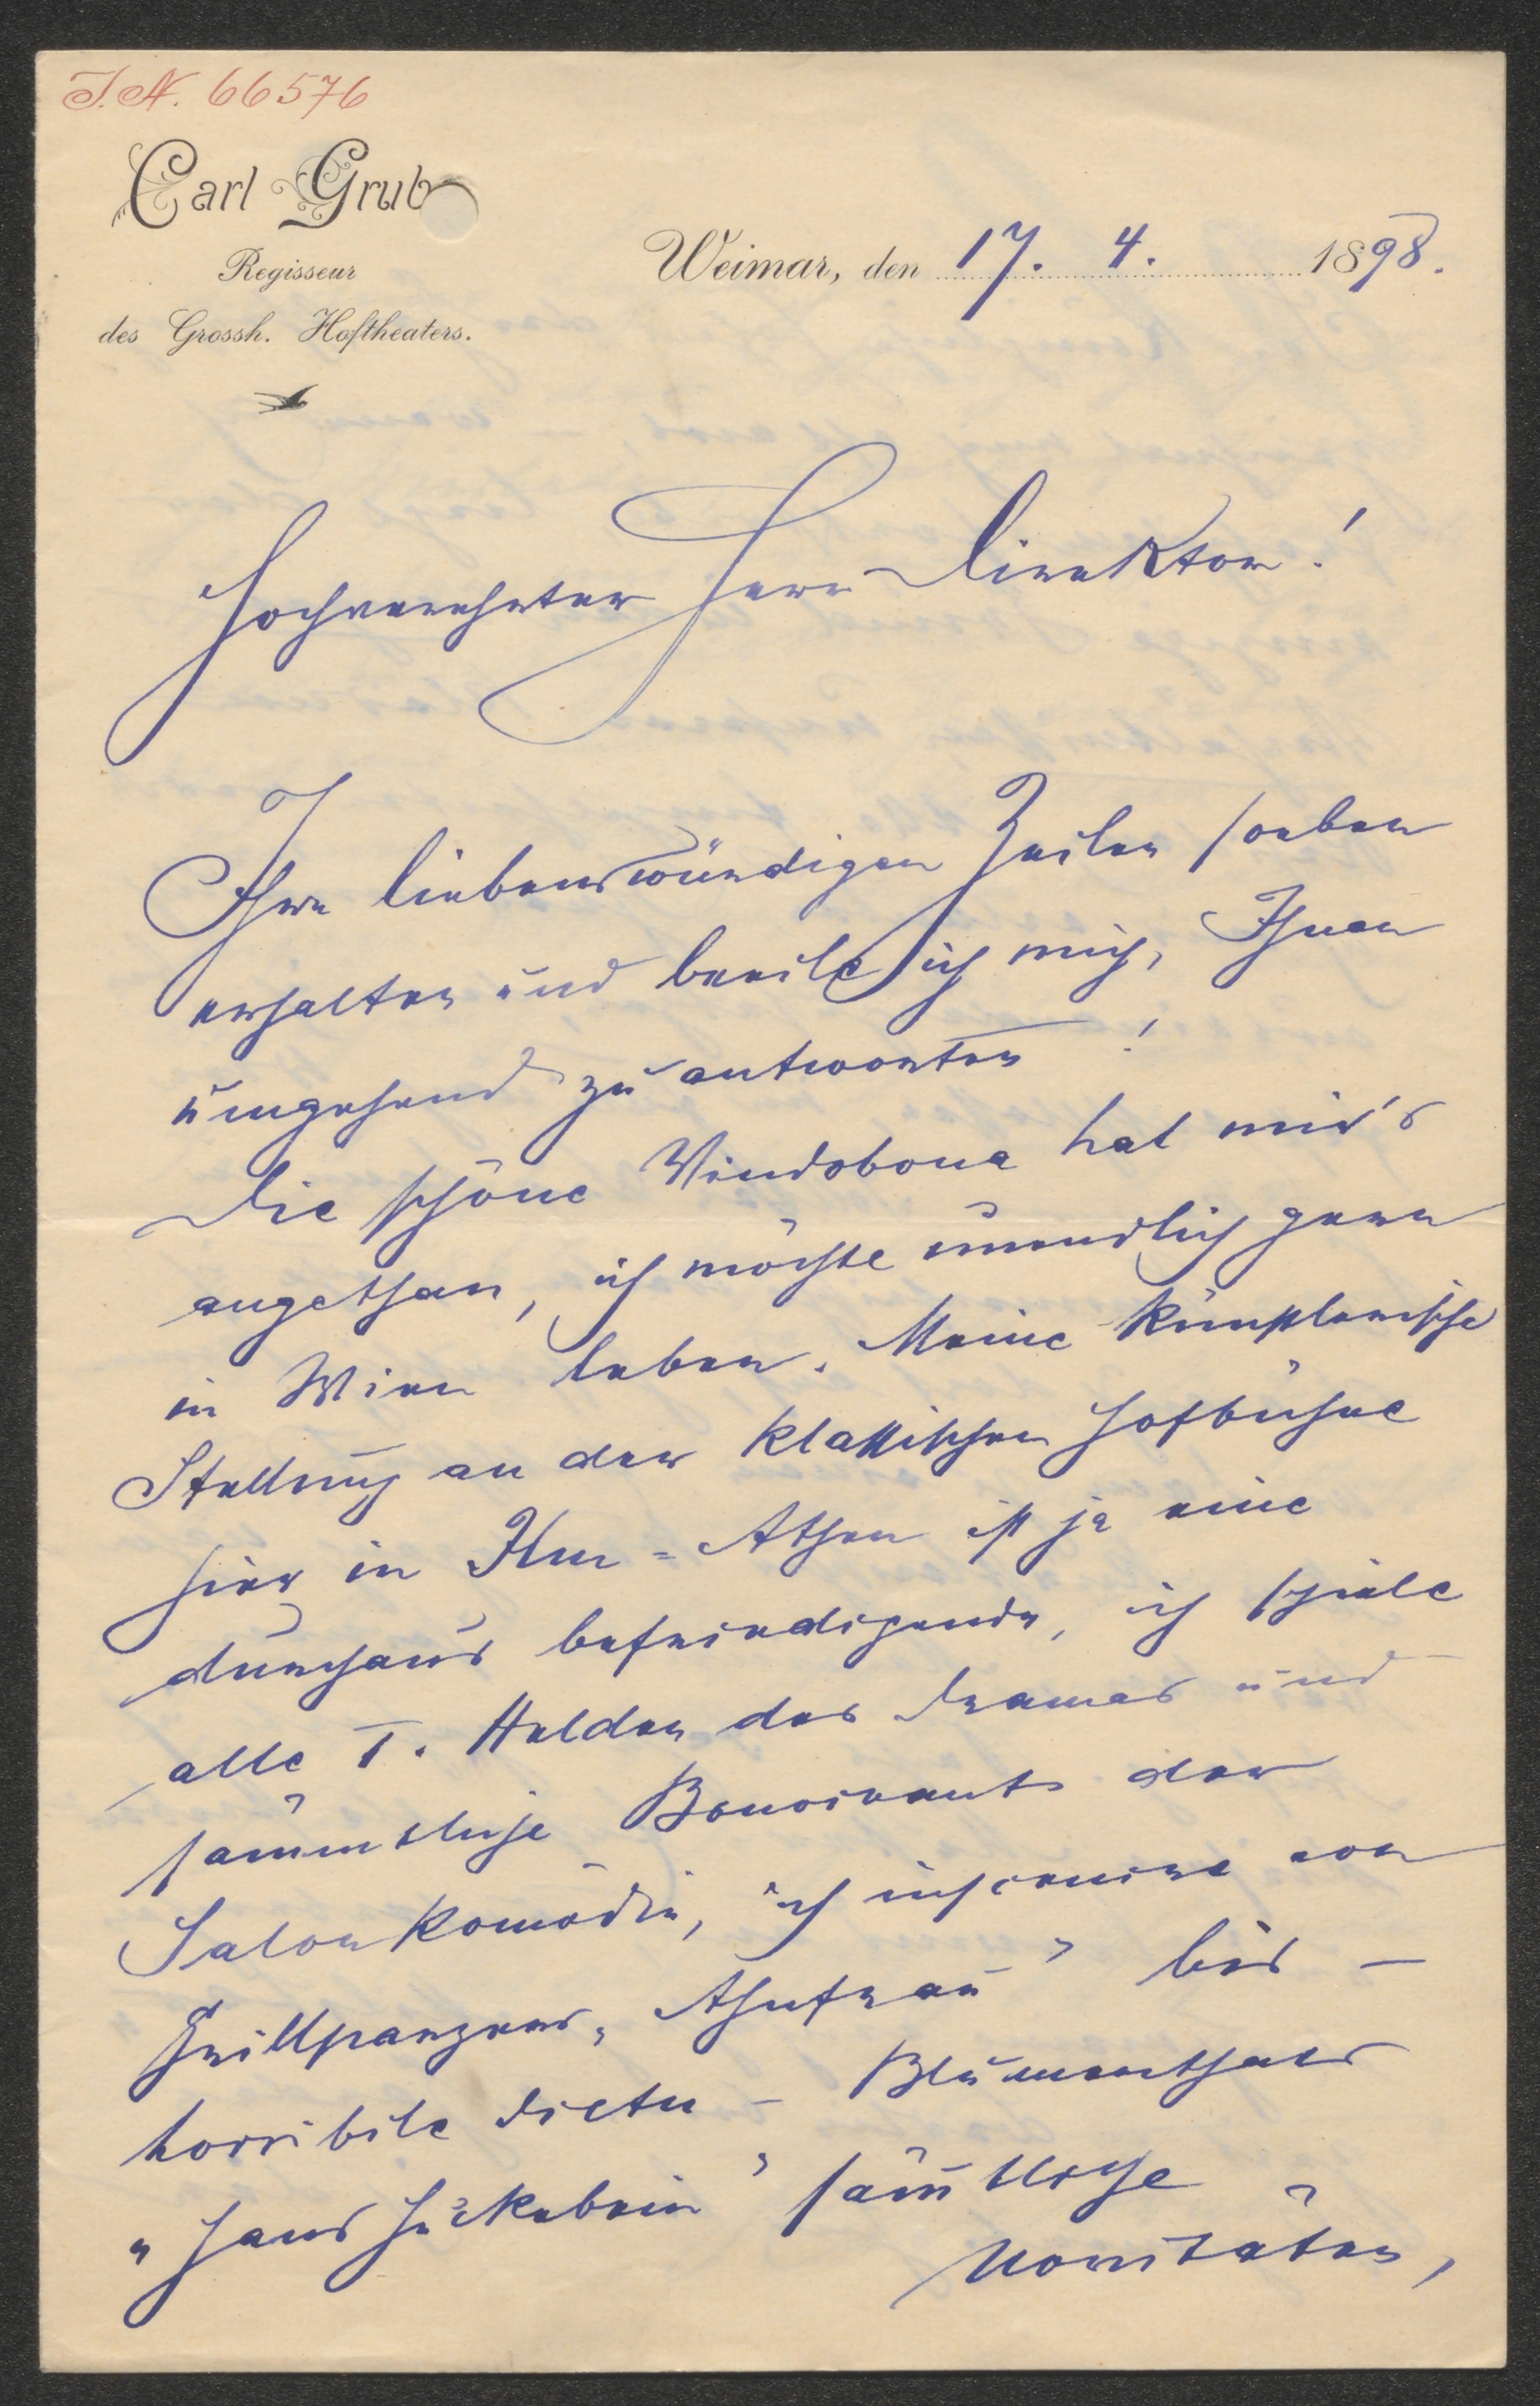 I.N. 66576
Carl Grub
Regisseur
des Grossh. Hoftheaters.
Weimar, den 17. 4. 1898.
Hochverehrter Herr Direktor!
Ihre liebenswürdigen Zeilen soeben
erhalten und beeile ich mich, Ihnen
umgehend zu antworten!
Die schöne Vindobona hat mir's
angethan, ich möchte unendlich gern
in Wien leben. Meine künstlerische
Stellung an der klassischen Hofbühne
hier in Ilm-Athen ist ja eine
durchaus befriedigende, ich spiele
alle I. Helden des Dramas und
sämmtliche Bonvivants der
Salonkomödie, ich inscenire von
Grillparzers „Ahnfrau" bis —
horribile dictu — Blumenthals
„Hans Huckebein" säm̄tliche
Novitäten,